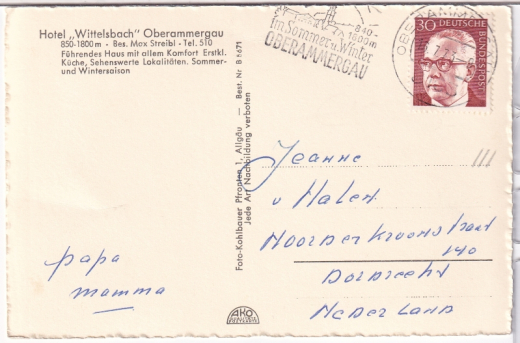 Hotel „Wittelsbach" Oberammergau
850-1800 m - Bes. Max Streibl - Tel. 510
Führendes Haus mit allem Komfort Erstkl.
Küche, Sehenswerte Lokalitäten. Sommer-
und Wintersaison
840-
1800m
im Sommer u. Winter
OBERAMMERGAU
OBERAMMERGAU
30
DEUTSCHE
BUNDESPOST
Foto-Kohlbauer Pfronten 1, Allgäu — Best. Nr. B 6671
Jede Art Nachbildung verboten
Jeanne
v Halen
Noorder Kroonstraat
140
Dordrecht
Nederland
papa
mamma
AKO